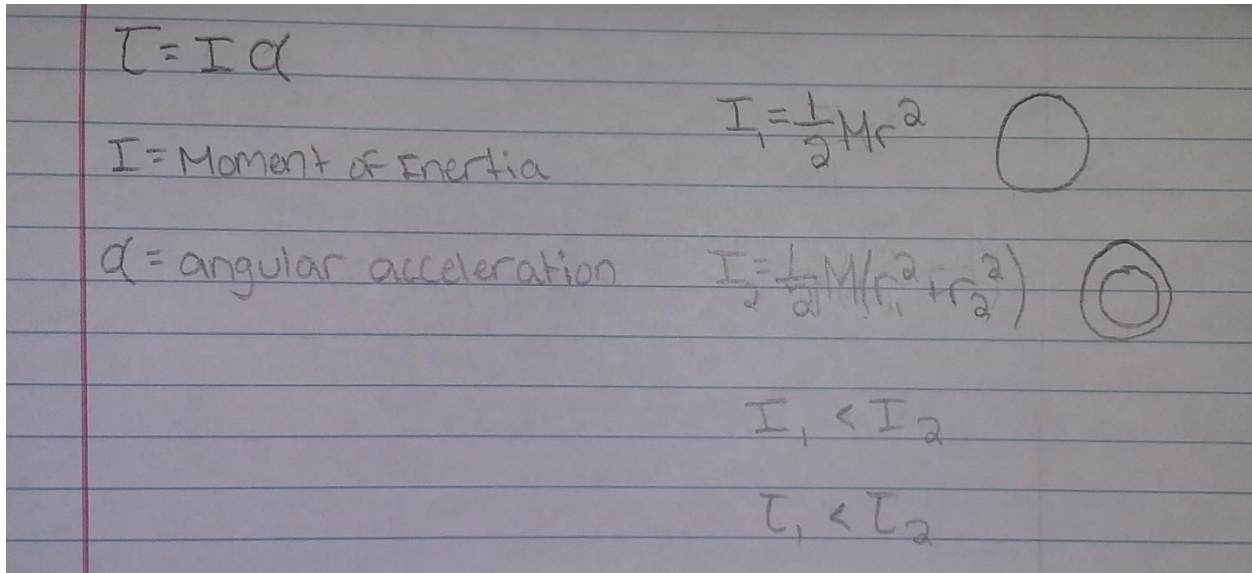 τ = I α
I = Moment of Inertia
α = angular acceleration
I₁ = 1/2 Mr²
I₂ = 1/2 M(r₁² + r₂²)
I₁ < I₂
τ₁ < τ₂